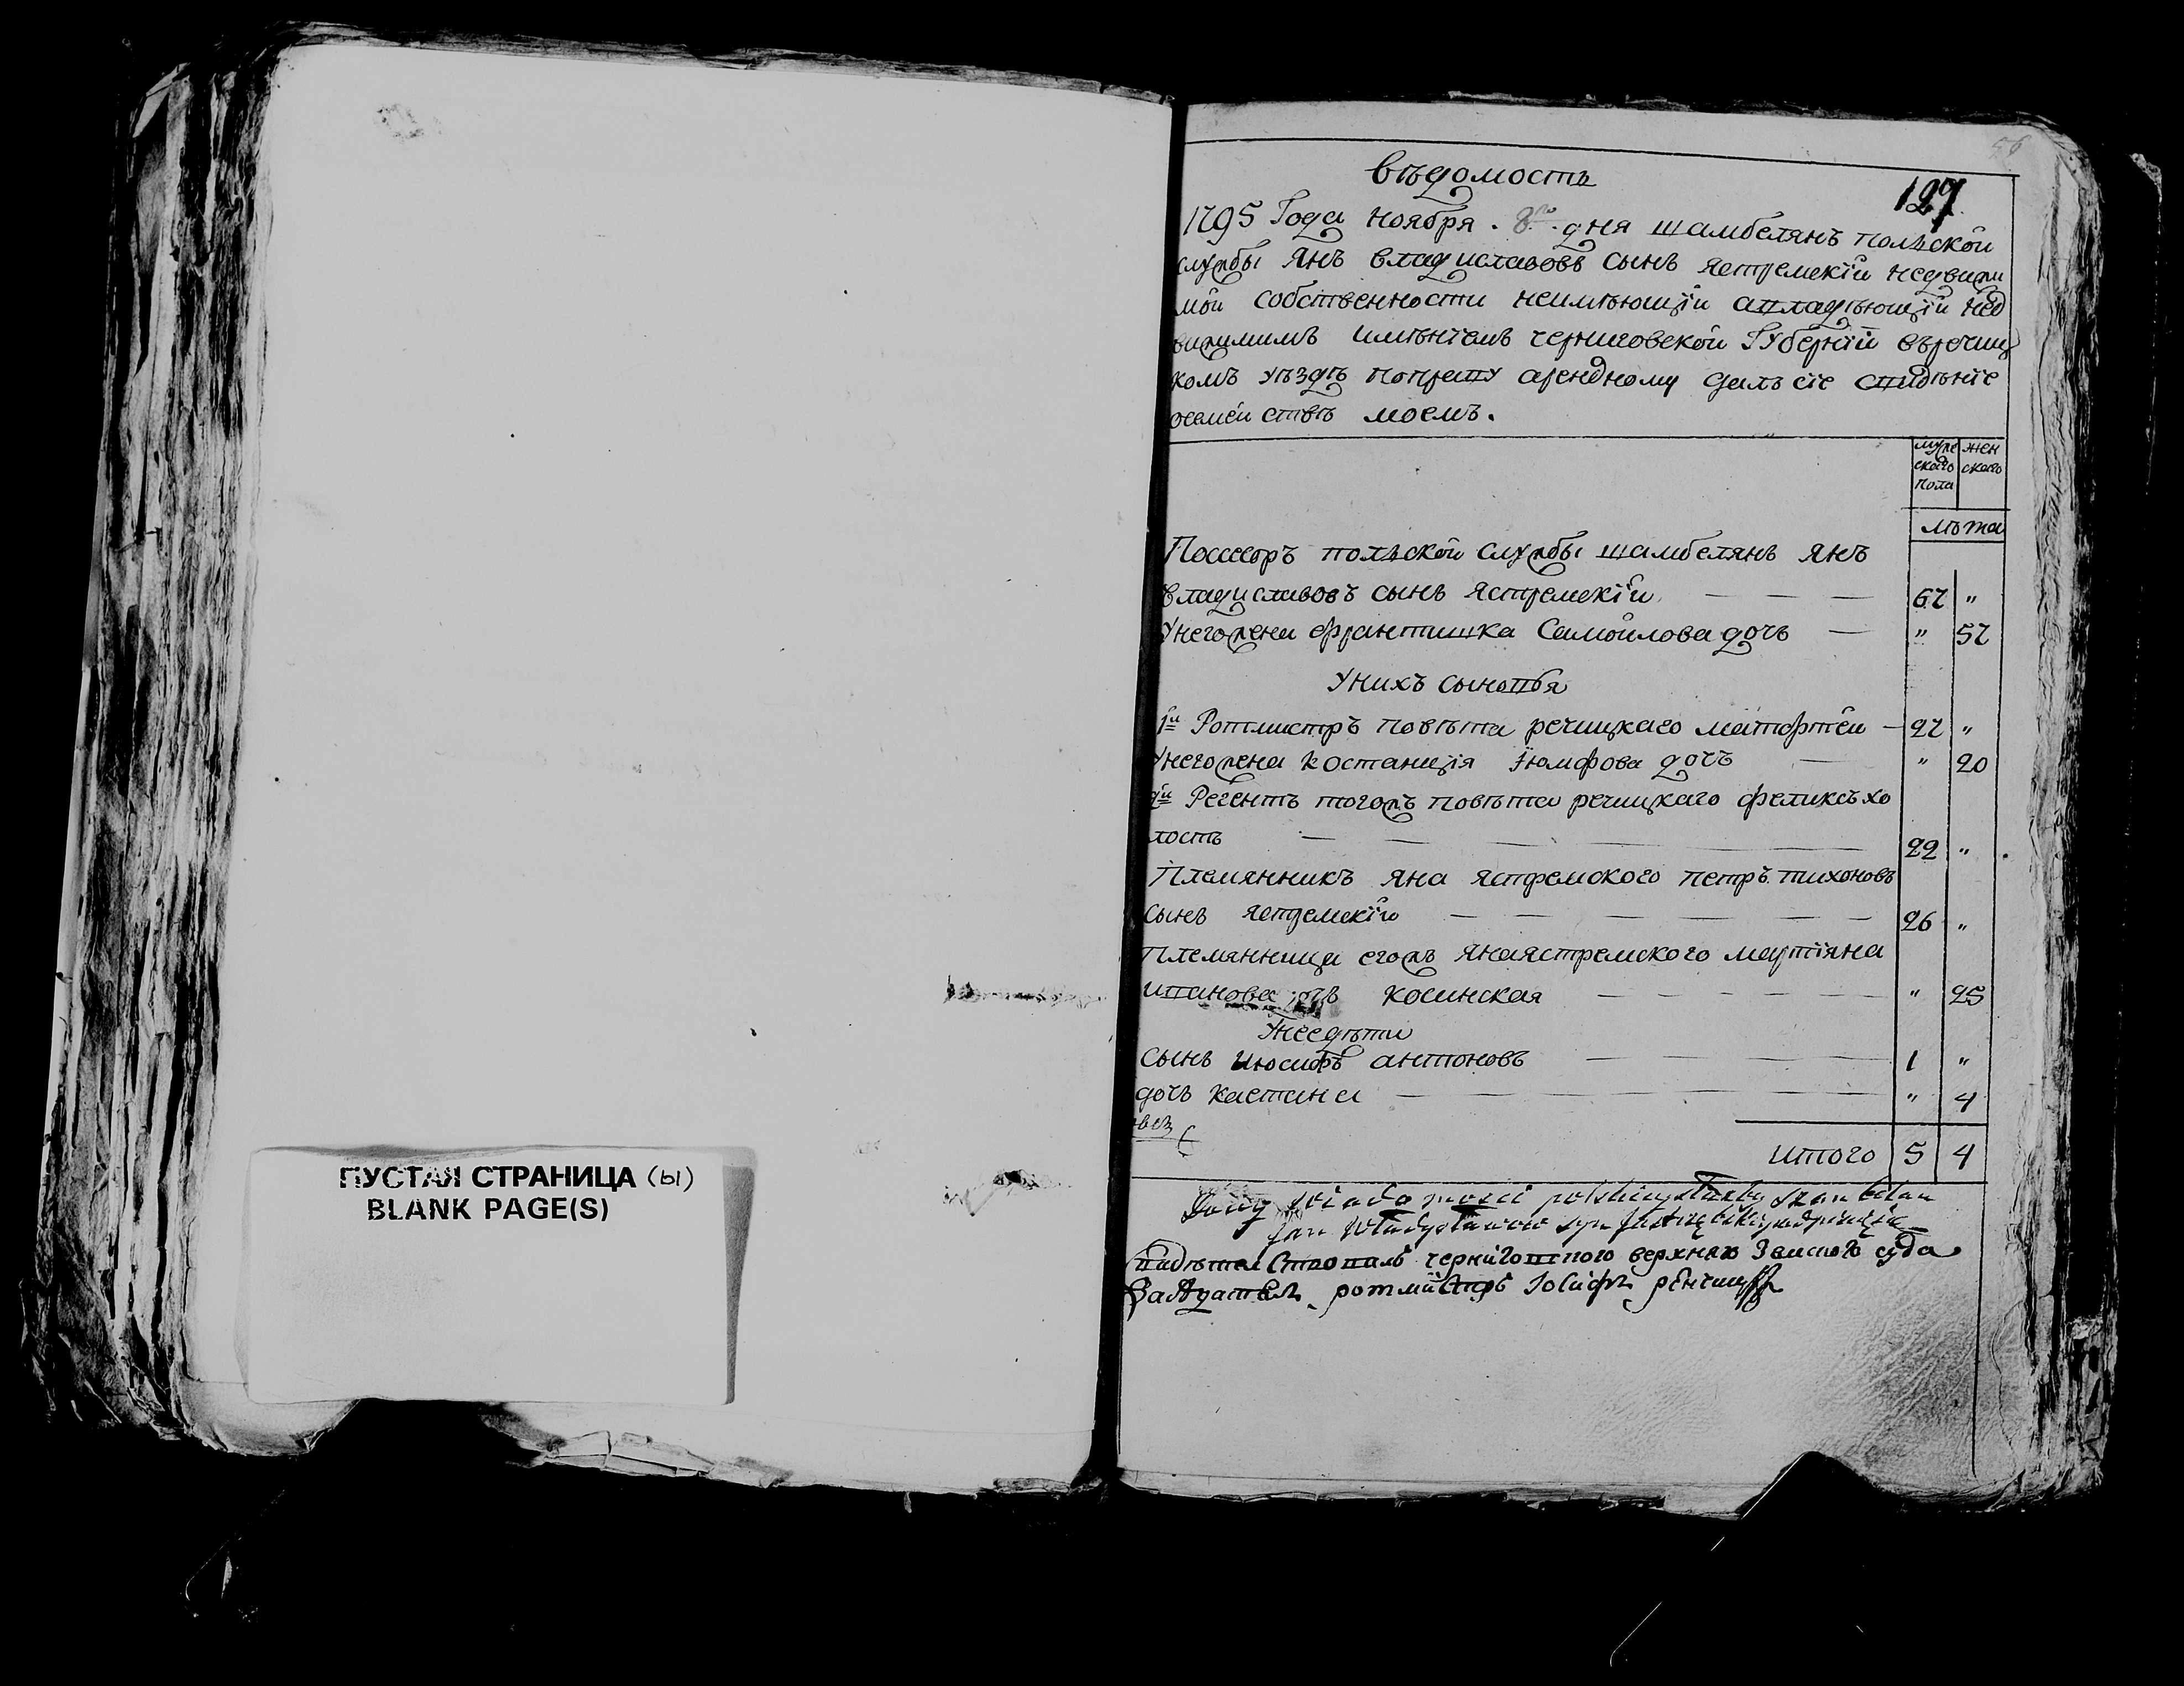 ПУСТАЯ СТРАНИЦА (ы)
BLANK PAGE(S)
56
127
Вѣдомость
1795 Года ноября . 8го . дня шамбелянъ польской
службы Янъ Владиславовъ сынъ Ястремскій недвижи
мой собственности неимѣющій авладѣющій нед
вижимимъ имѣніемъ черниговской Губерніи врѣчиц
комъ уѣздѣ поправу арендному далъ сіе свидѣніе
осемействѣ моемъ.
мужe жен
ского ского
пола
лѣта
Поссесоръ польской службы шамбелянъ янъ
Владиславовъ сынъ Ястремскій — — — 67 "
Унегожена Франтишка Самойлова дочъ — " 57
Унихъ сыновья
1й Ротмистръ повѣта речицкаго матфтей — 27 "
Унегожена костанція Іюзифова дочъ — " 20
2й Регентъ тогожъ повѣта речицкаго феликсъ хо
лостъ — — — — — — 22 "
Племянникъ яна ястремского петръ тихоновъ
сынъ ястремскій — — — — — — 26 "
Племянница егожъ янаястремского мартіяна
иванова дочъ косинская — — — — — " 25
Унеедѣти
Сынъ Июсифъ антоновъ — — — — 1 "
дочъ кастана — — — — — — " 4
итого 5 4
polskiey służby szambelan
Jan Władysławow syn
черниговского верхняго Земского суда
Заседатель ротмистръ Іосифъ